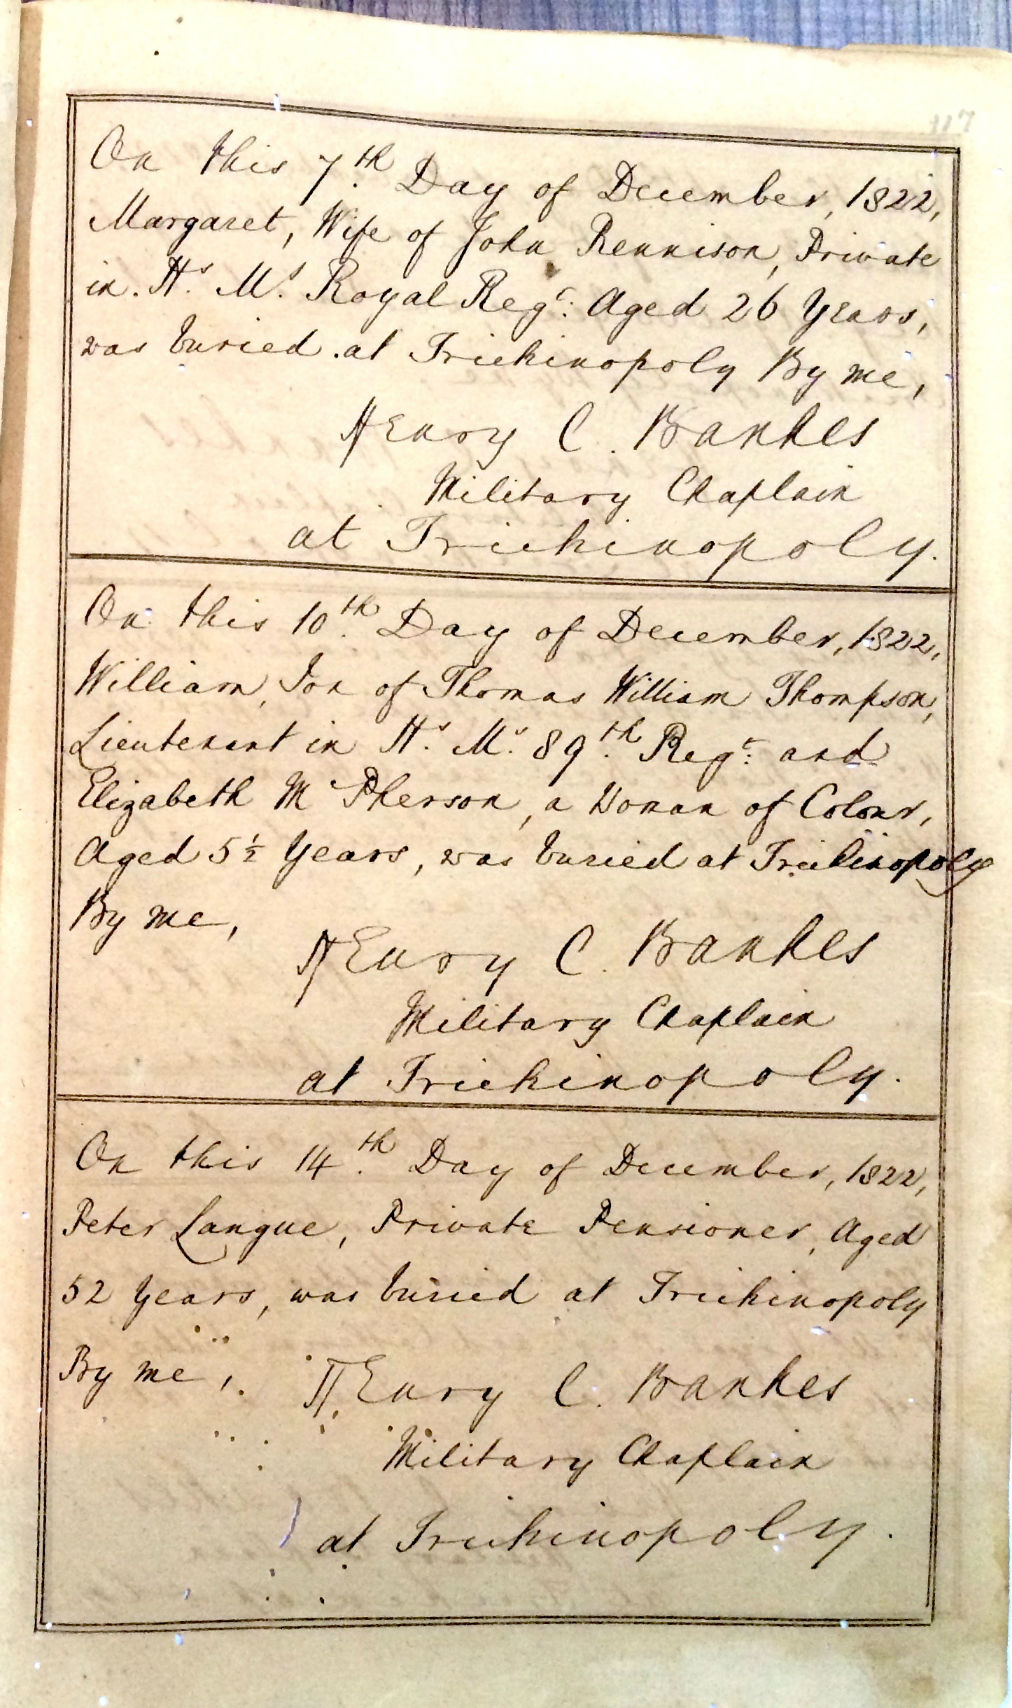 117
On this 7th Day of December, 1822,
Margaret, Wife of John Rennison, Private
in H.s M.s Royal Reg.t Aged 26 Years,
was buried at Trichinopoly By me,
Henry C. Bankes
Military Chaplain
at Trichinopoly.
On this 10th Day of December, 1822,
William, Son of Thomas William Thompson,
Lieutenant in H.s M.s 89th Reg.t and
Elizabeth McPherson, a Woman of Colour,
Aged 5½ Years, was buried at Trichinopoly
By me,
Henry C. Bankes
Military Chaplain
at Trichinopoly.
On this 14th Day of December, 1822,
Peter Langue, Private Pensioner, Aged
52 Years, was buried at Trichinopoly
By me,
Henry C. Bankes
Military Chaplain
at Trichinopoly.